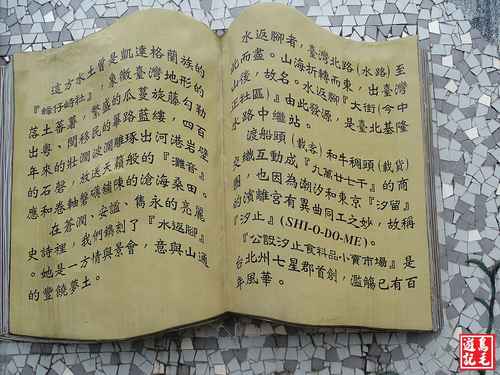 這方水土曾是凱達格蘭族的
『蜂仔峙社』，象徵臺灣地形的
落土蕃薯、繁盛的瓜蔓旋藤勾勒
出粵、閩移民的篳路藍縷，四百
年來的壯濶波瀾雕琢出河港岩壁
的石磬，放送天籟般的『灘音』
應和卷軸磐礴鋪陳的滄海桑田。
在苔潤、安謐、雋永的亮麗
史詩裡，我們鐫刻了『水返腳』
。她是一方情與景會，意與山通
的豐饒夢土。
水返腳者，臺灣北路(水路)至
此而盡。山海折轉而東，出臺灣
山後，故名。水返腳『大街(今中
正社區)』由此發源，是臺北基隆
水路中繼站。
渡船頭(載客)和牛稠頭(載貨)
交織互動成『九萬廿七千』的商
圈，也因為潮汐和東京『汐留』
的濱離宮有異曲同工之妙，故稱
『汐止』(SHI-O-DO-ME)。
『公設汐止食料品小賣市場』是
台北州七星郡首創，濫觴已有百
年風華。
馬毛
遊記